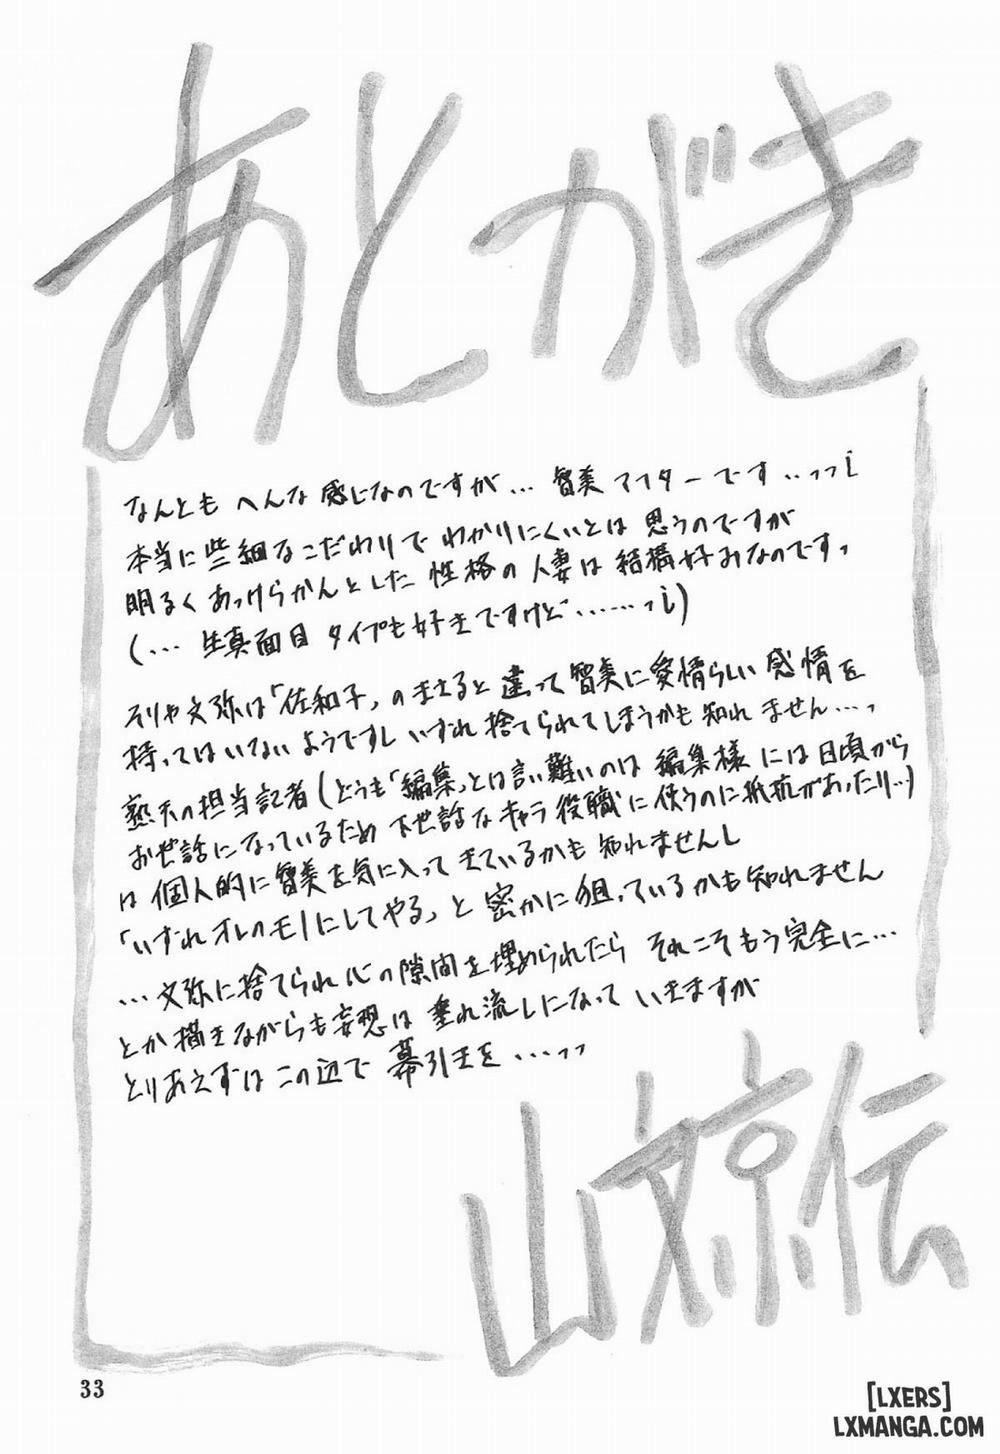 あとがき
なんとも へんな 感じなのですが… 智美 アフターです‥っっi
本当に些細なこだわりで わかりにくいとは 思うのですが
明るく あっけらかんとした 性格の 人妻は 結構好みなのです、
(… 生真面目 タイプも好きですけど……っi)
そりゃ文弥は「佐和子」の ときと 違って 智美に愛情らしい 感情を
持ってはいないようですし いずれ 捨てられてしまうかも 知れません…、
熟天の担当記者(どうも「編集」とは言い難いのは 編集様 には 日頃から
お世話になっているため 下世話な キャラ 役職に 使うのに 抵抗があったり…)
は 個人的に 智美を気に入って きているかも 知れませんし
「いずれオレのモノにしてやる」と 密かに 狙っているかも知れません
…文弥に捨てられ 心の隙間を埋められたら それこそもう完全に…
とか 描きながらも 妄想は 垂れ流しになって いきますが
とりあえずは この辺で 幕引きを…っっ
山文京伝
33
[LXERS]
LXMANGA.COM